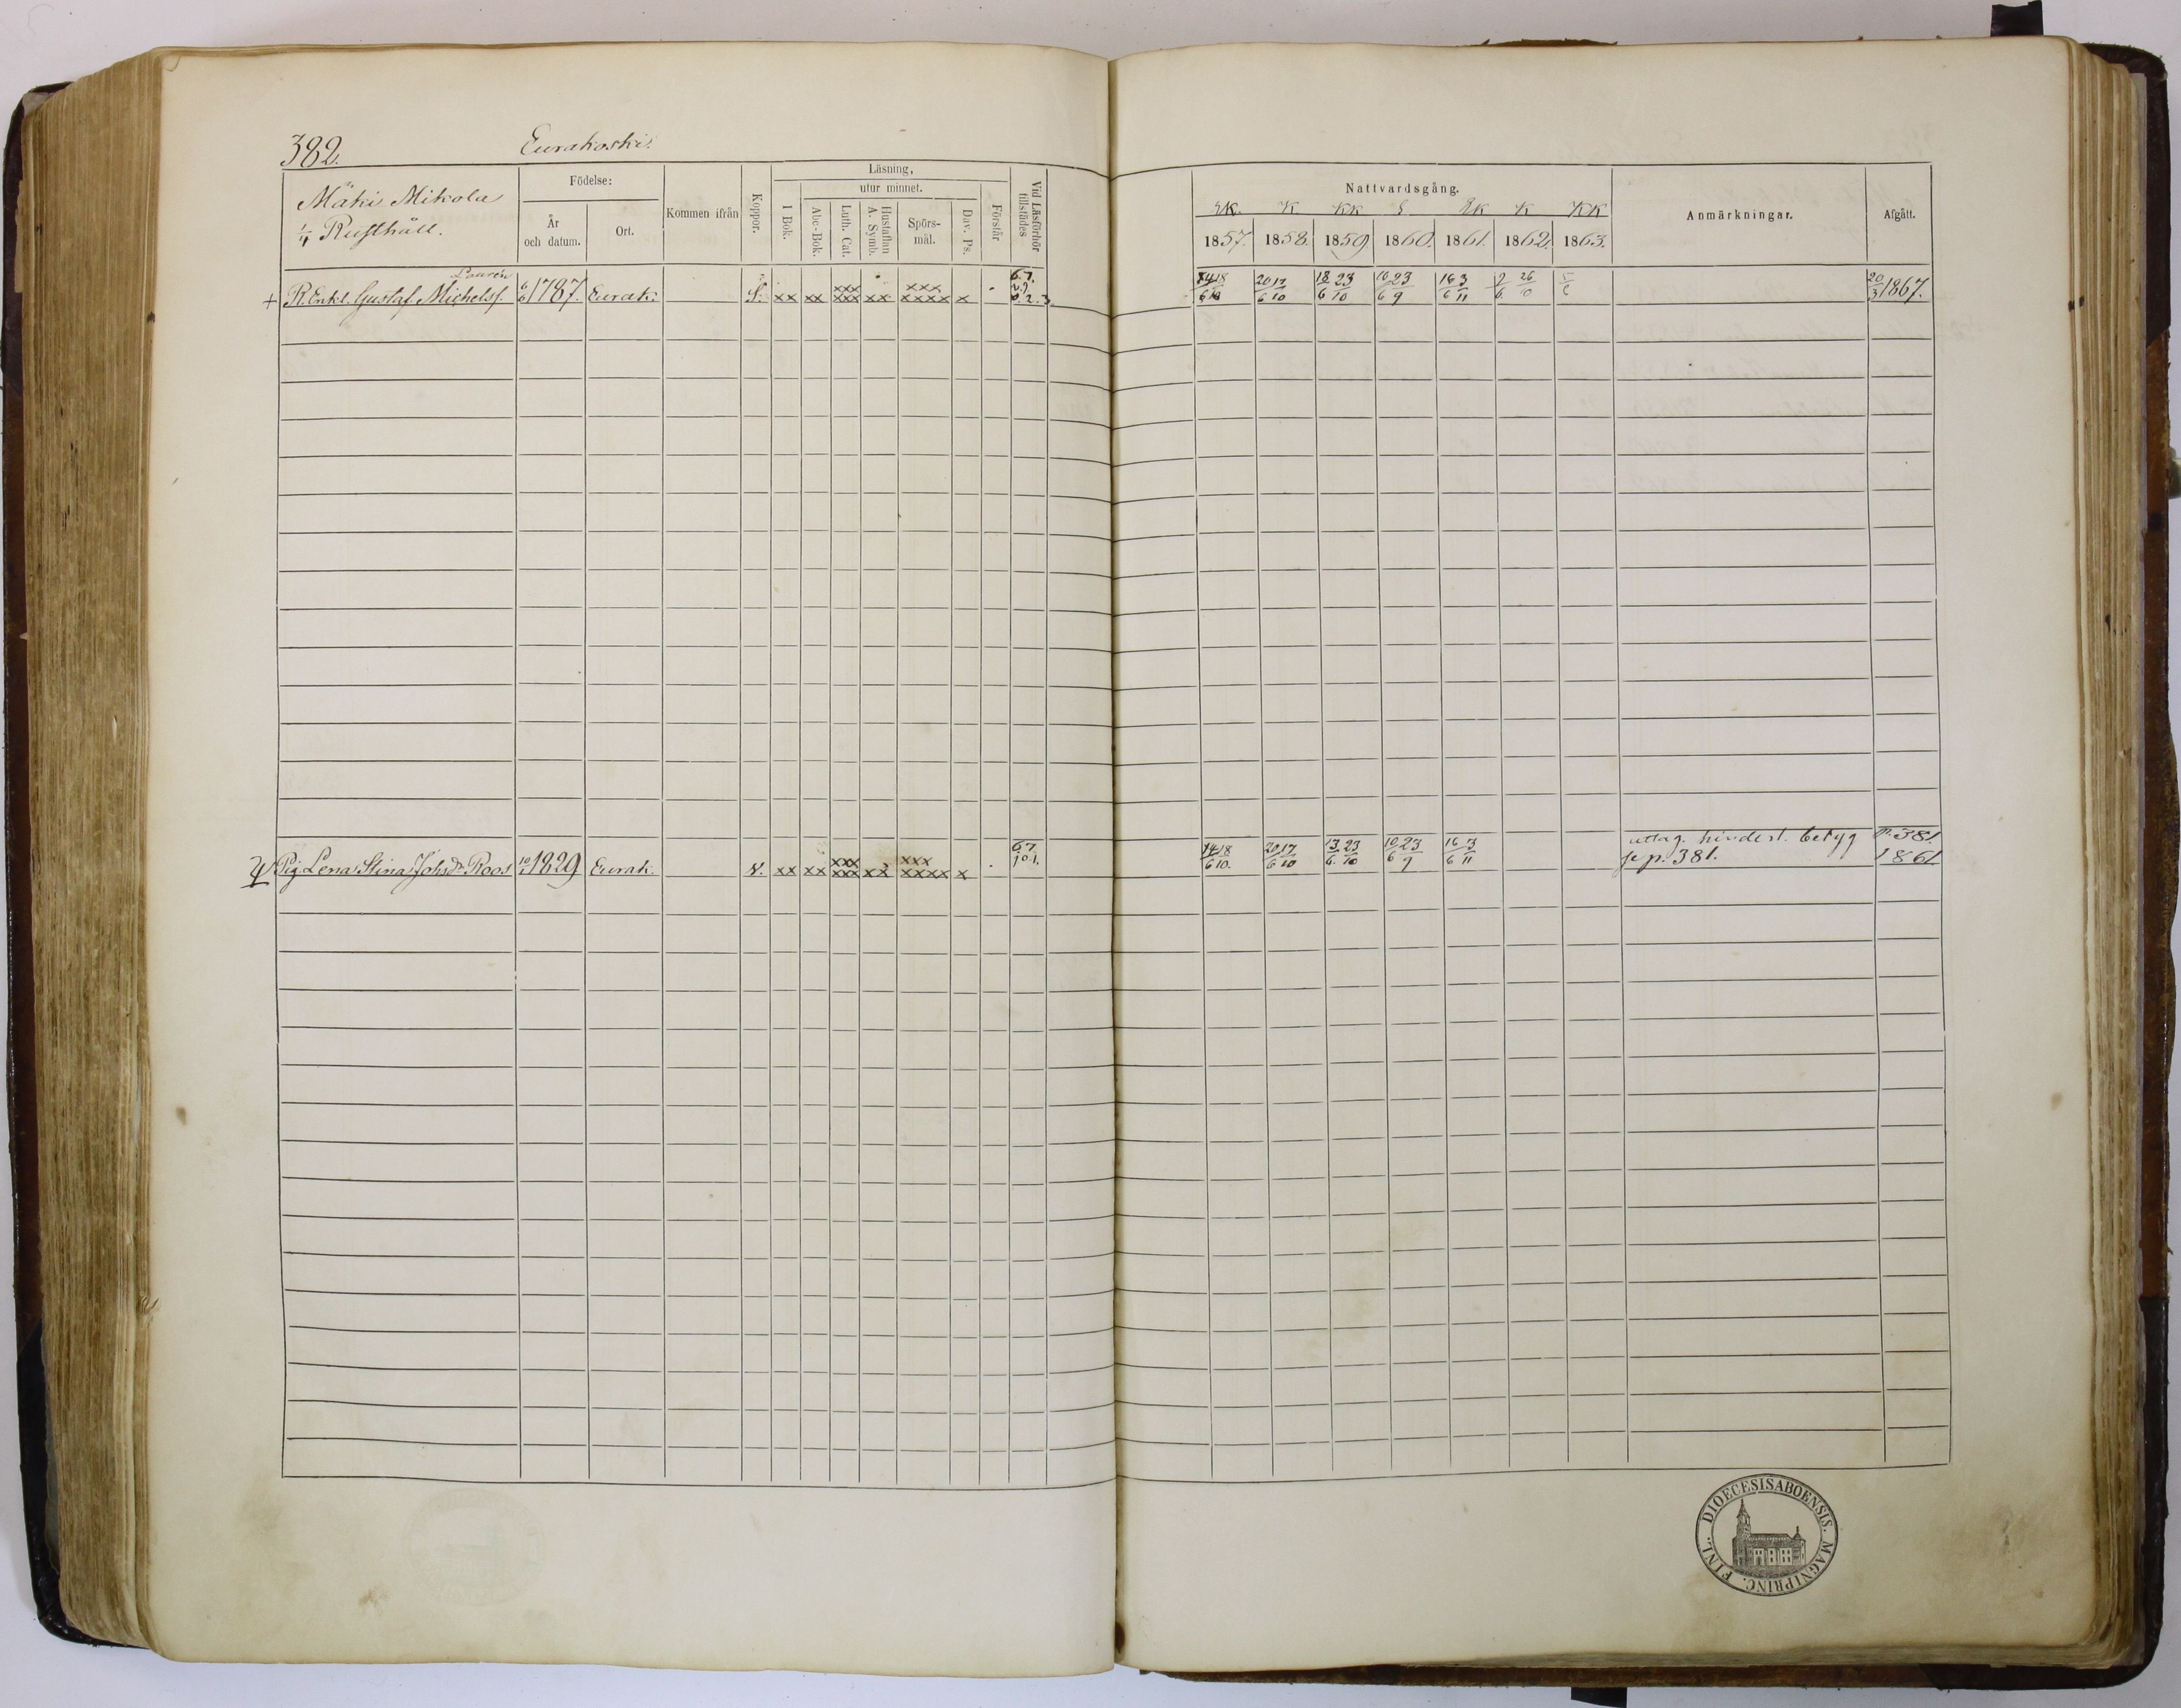 382. Eurakoski.
Mäki Mikola
1/4 Rusthåll.
Födelse:
År
och datum.
Ort.
Kommen ifrån
Koppor.
Läsning,
utur minnet.
I Bok.
Abc-Bok.
Luth. Cat.
Hustaflan
A. Symb.
Spörs-
mål.
Dav. Ps.
Förstår
Vid Läsförhör
tillstädes
Nattvardsgång.
K. KK K KK
1857. 1858. 1859. 1860. 1861. 1862. 1863.
Anmärkningar.
Afgått.
Lauren
+ R. Enkl. Gustaf Michelss. 6/6 1787. Eurak. xx xx xxx xxx xx xxx xxxx x
18/10 20/6 17/10 18/6 23/10 16/6 23/9 16/6 3/11 26/10 20/3 1867.
Pig. Lena Stina Johsdr Roos 1829 Eurak. v. xx xx xxx xxx xx xxx xxxx x
18/10. 20/6 17/10 13/6. 23/10 10/6 23/9 16/6 3/11
uttag. hindersl. betyg
se p. 381.
p. 381.
1861
DIOECESIS ABOENSIS. MAGNI PRINC. FINL.